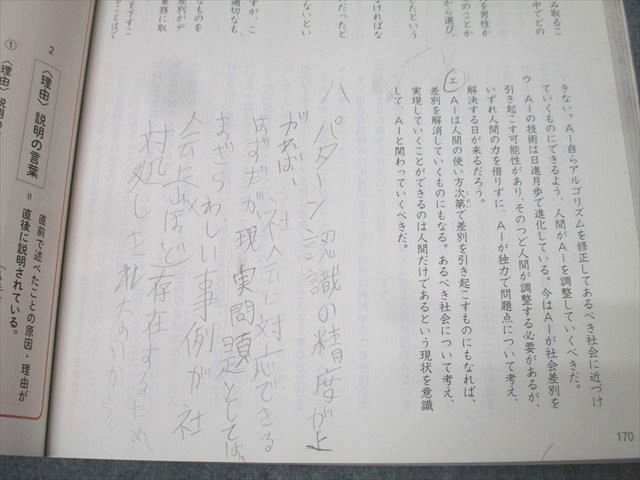 み取るこ
中でとの
男性か
のことか
から選び、
ければな
たという
だったと
ないとい
すが、こ
適切なも
差別がデ
なものを
業務に取
きない。AI自らアルゴリズムを修正してあるべき社会に近づけ
ていくものにできるよう、人間がAIを調整していくべきだ。
ウ　AIの技術は日進月歩で進化している。今はAIが社会差別を
引き起こす可能性があり、そのつど人間が調整する必要があるが、
いずれ人間の力を借りずに、AIが独力で問題点について考え、
解決する日が来るだろう。
エ　AIは人間の使い方次第で差別を引き起こすものにもなれば、
差別を解消していくものにもなる。あるべき社会について考え、
実現していくことができるのは人間だけであるという現状を意識
して、AIと関わっていくべきだ。
八　パターン認識の精度が上
がれば、社会に対応できる
はずだが現実問題としては、
まぎらわしい事例が社
会に山ほど存在するため、
対処しきれないから。
2
〈理由〉説明の言葉
＝
直前で述べたことの原因・理由が
直後に説明されている。
①
〈理由〉説明の
170